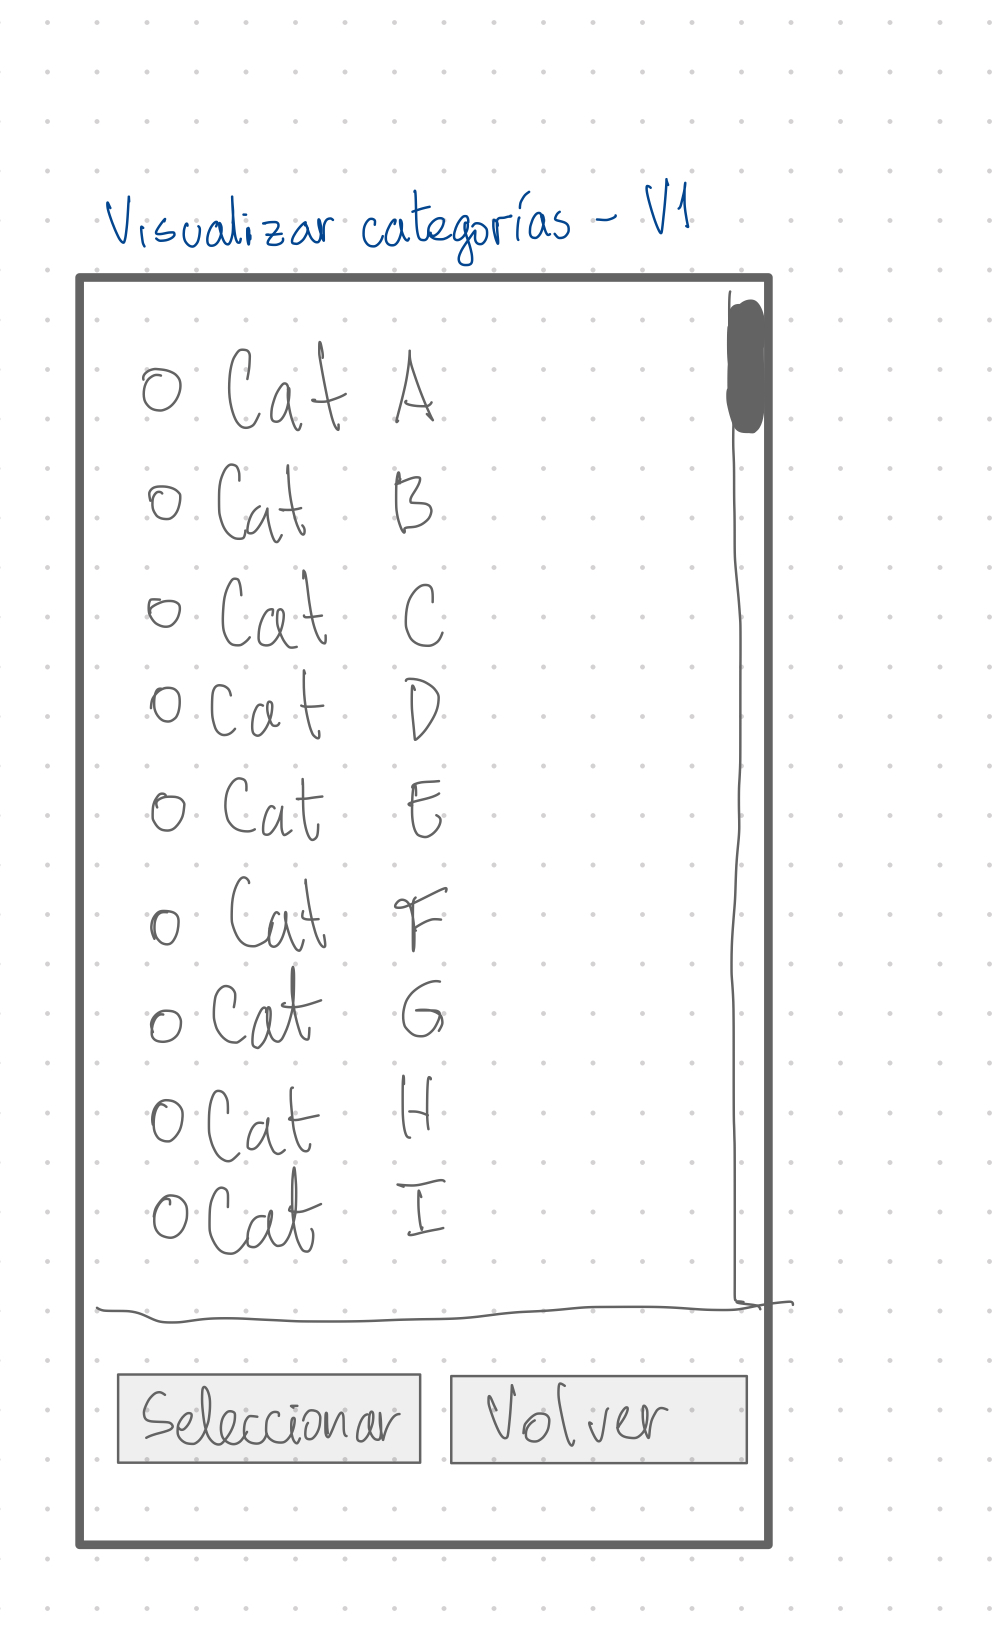 Visualizar categorías - V1
Cat A
Cat B
Cat C
Cat D
Cat E
Cat F
Cat G
Cat H
Cat I
Seleccionar Volver